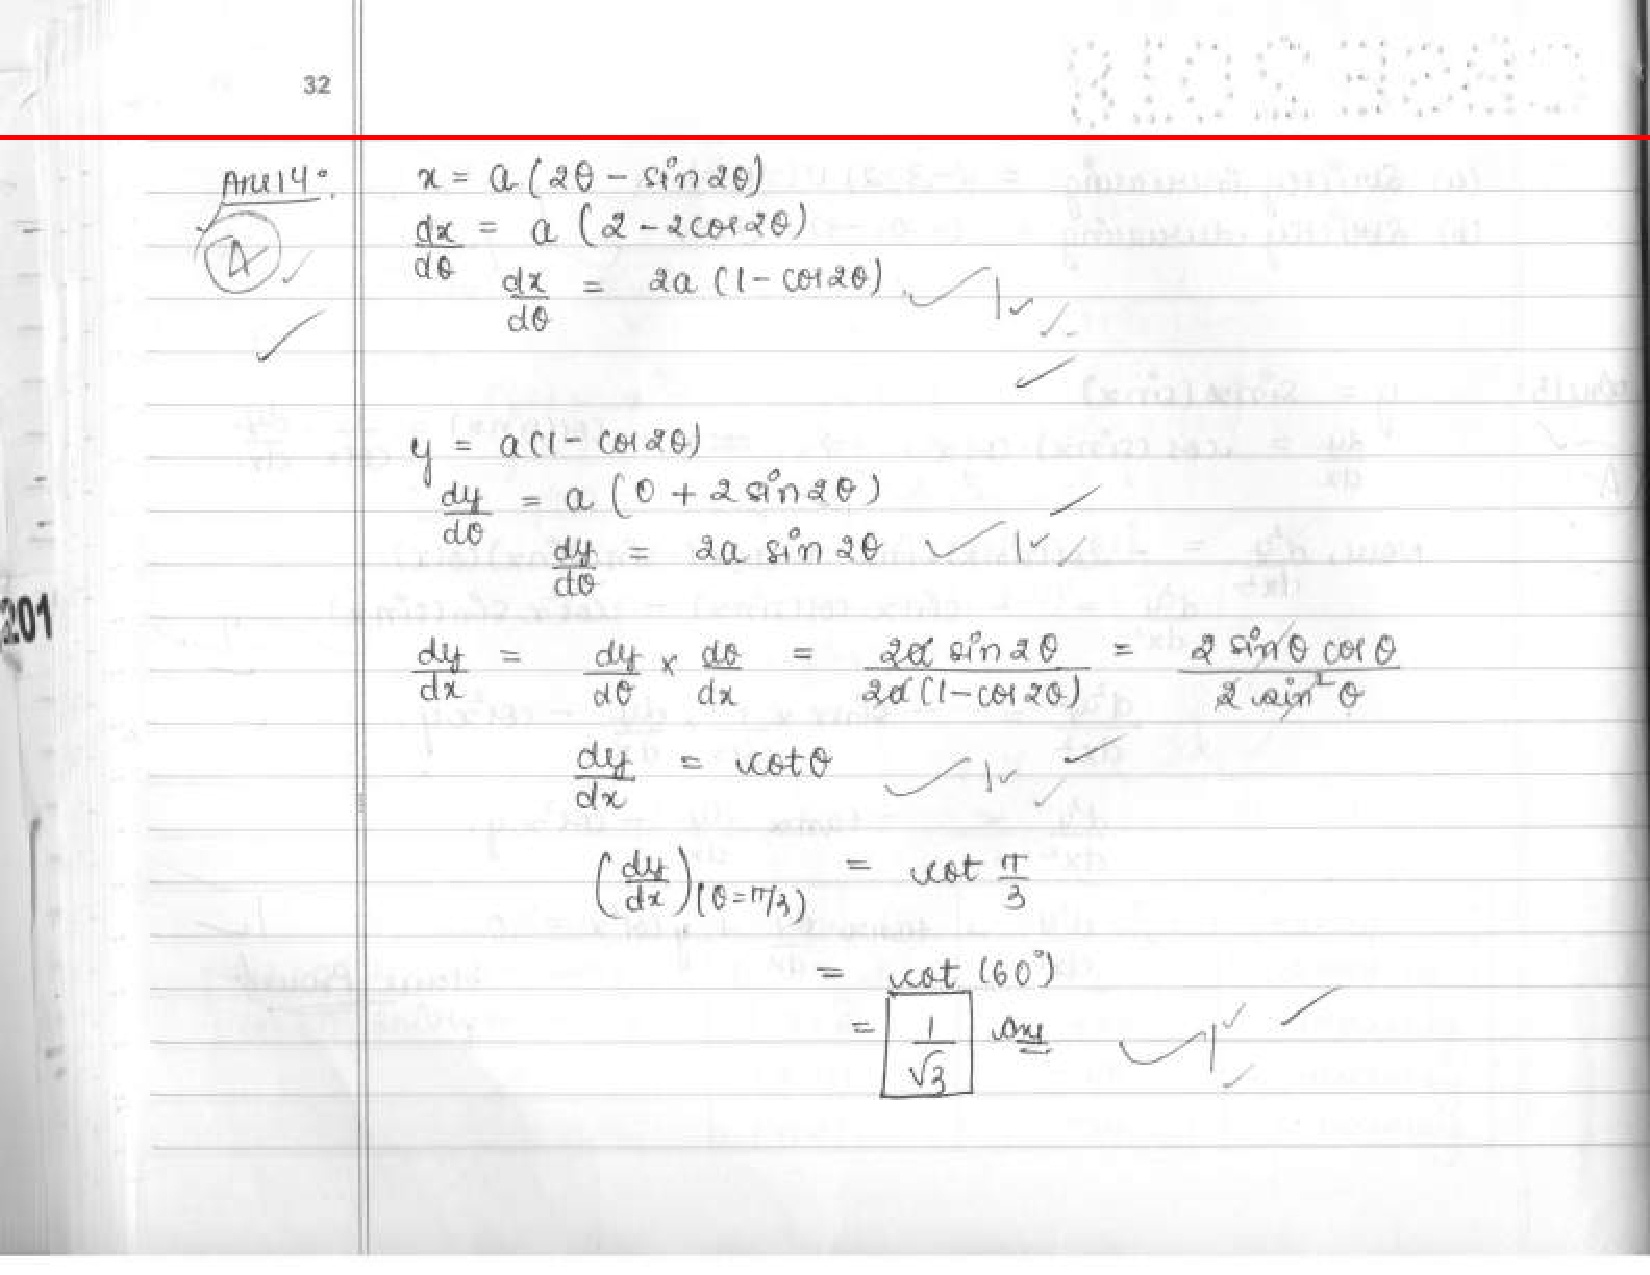 32
Ans 14:
x = a(2θ - sin2θ)
dx/dθ = a (2 - 2cos2θ)
4
dx/dθ = 2a (1 - cos2θ) 1
y = a(1 - cos2θ)
dy/dθ = a (0 + 2 sin2θ)
dy/dθ = 2a sin2θ 1
201
dy/dx = dy/dθ × dθ/dx = 2a sin2θ / 2a(1 - cos2θ) = 2 sinθ cosθ / 2 sin²θ
dy/dx = cotθ 1
(dy/dx)(θ=π/3) = cot π/3
= cot (60°)
= 1/√3 Ans 1